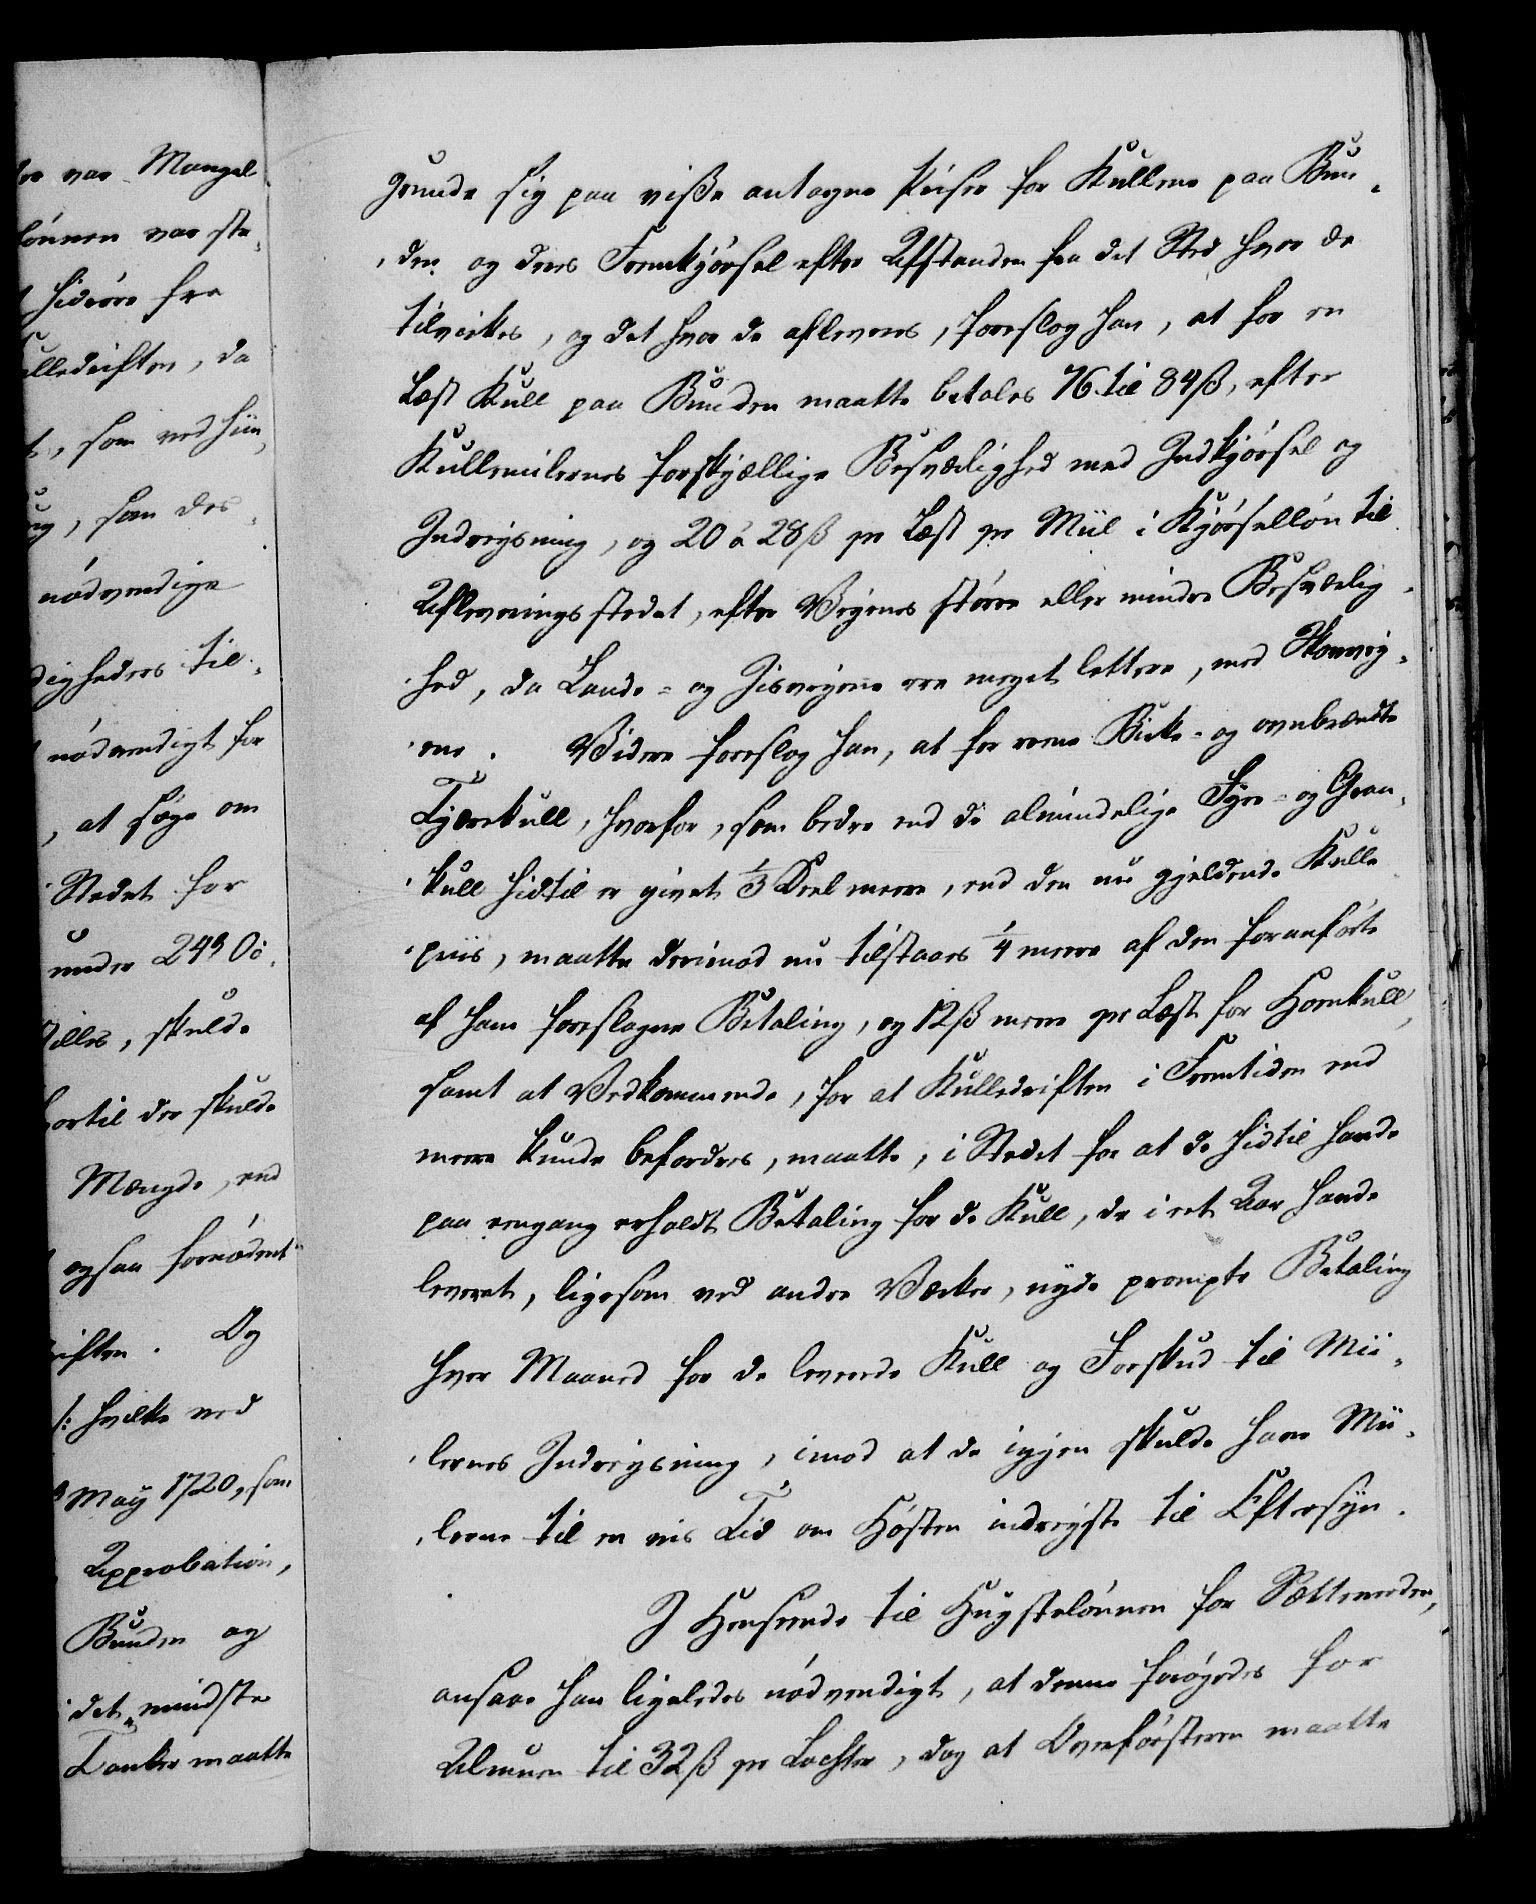 der var Mangel
lönnen var sta-
hidröre fra
ulledriften, da
t, som ved hiin,
ng, som des-
nödvendige
digheders til-
nödvendigt for
, at söge om
Stedet for
under 249
stilles, skulde
hortil der skulde
Mængde, end
ogsaa fornödent
riften. Og
/: hvilke ved
May 1720, som
Approbation,
Bunden og
det mindste
Tanker maatte
grunde sig paa visse antagne Priser for Kullene paa Bun-
den og deres Fremkjörsel efter Afstanden fra det Sted hvor de
tilvirkes, og det hvor de afleveres, foreslog han, at for en
Læst Kull paa Bunden maatte betales 76 til 84 ß, efter
Kullemilernes forskjællige Besværlighed med Indkjörsel og
Indreysning, og 20 à 28 ß pr Læst pr Miil i Kjörsellön til
Afleveringsstedet, efter Veyenes större eller mindre Besværlig-
hed, da Lande- og Iisveyene ere meget lettere, end Skovvey-
ene. Videre foreslog han, at for reene Birke- og ovnbrændte
Tjærekull, hvorfor, som bedre end de almindelige Fyre- og Gran-
kull hidtil er givet 1/3 Deel meere, end den nu gjeldende Kulle
priis, maatte derimod nu tilstaaes 1/4 meere af den foranförte
af ham foreslagne Betaling, og 12 ß mere pr Læst for Hornkull,
samt at Vedkommende, for at Kulledriften i Fremtiden end
meere kunde befordres, maatte, i Stedet for at de hidtil havde
paa eengang erholdt Betaling for de Kull, de i eet Aar havde
leveret, ligesom ved andre Værker, nyde prompte Betaling
hver Maaned for de leverede Kull og Forskud til Mii-
lernes Indreysning, imod at de igjen skulde have Mii-
lerne til en vis Tid om Hösten indreyste til Eftersyn.
I Henseende til Hugstelönnen for Sætteveden,
ansaae han ligeledes nödvendigt, at denne forögedes for
Almuen til 32 ß pr Lachter, dog at Overförsteren maatte